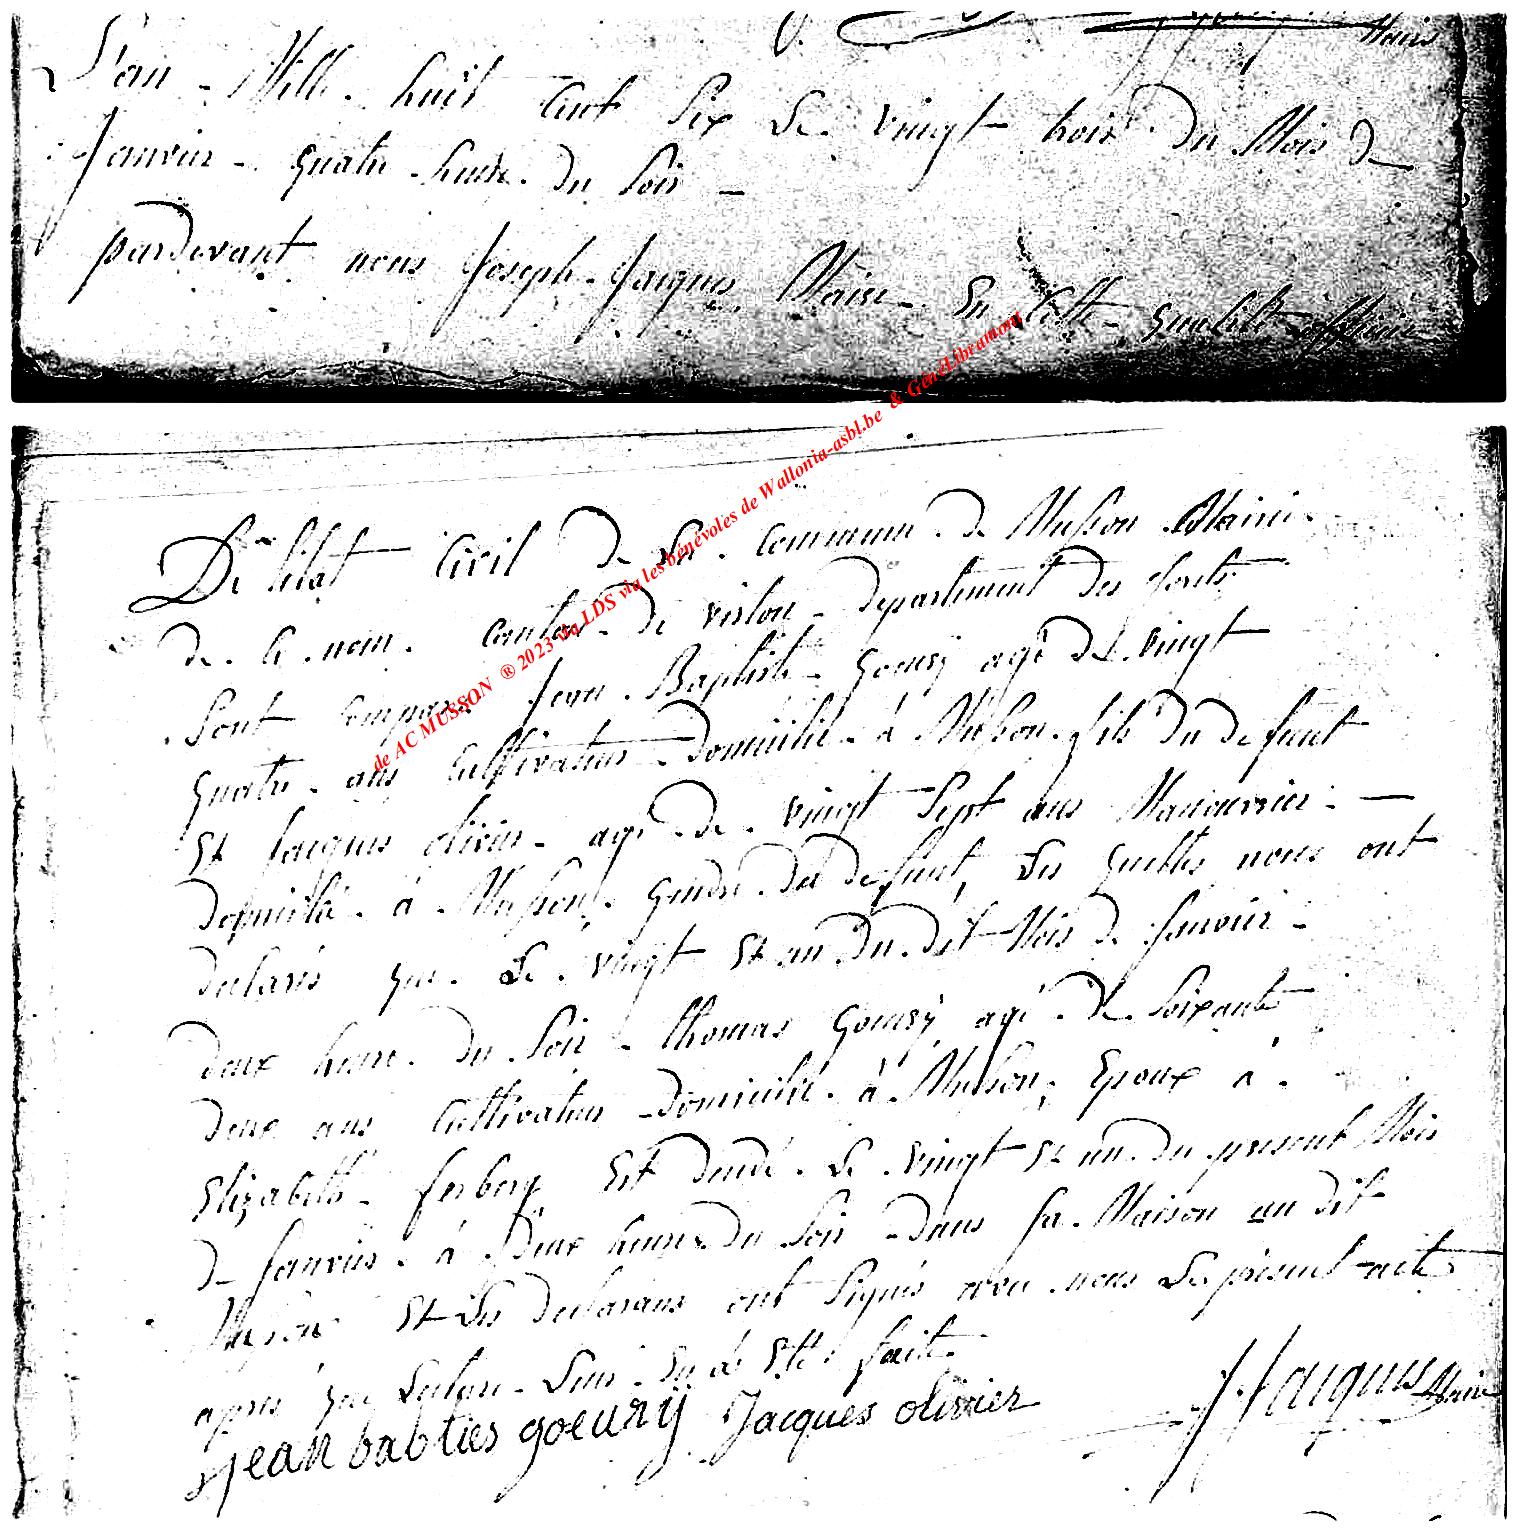 Maire
L'an Mille huit Cent Six Le vingt trois du Mois de
Janvier quatre heure du Soir
pardevant nous Joseph Jacques Maire En Cette qualité officier
De l'état Civil de La commune de Musson Mairie
de ce nom canton de virton departement des forets
Sont comparu Jean Baptiste Goury agé de vingt
quatre ans Cultivateur Domicilié à Musson fils du defunt
Et Jacques olivier agé de vingt Sept ans Manouvrier
domicilié à Musson Gendre du defunt, Les quelles nous ont
declarés que Le vingt et un du dit Mois de Janvier
deux heure du Soir thomas Goury agé de Soixante
deux ans Cultivateur Domicilié à Musson, Epoux à
Elizabeth Est decedé Le vingt et un du present Mois
de Janvier à Deux heures du Soir dans Sa Maison au dit
Musson Et Les declarans ont Signés avec nous Le présent acte
après que Lecture Leur En a Eté faite
jean babties goeury Jacques olivier J. Jacques Maire
de AC MUSSON ® 2023 via LDS via les bénévoles de Wallonia-asbl.be & GénéLibramont